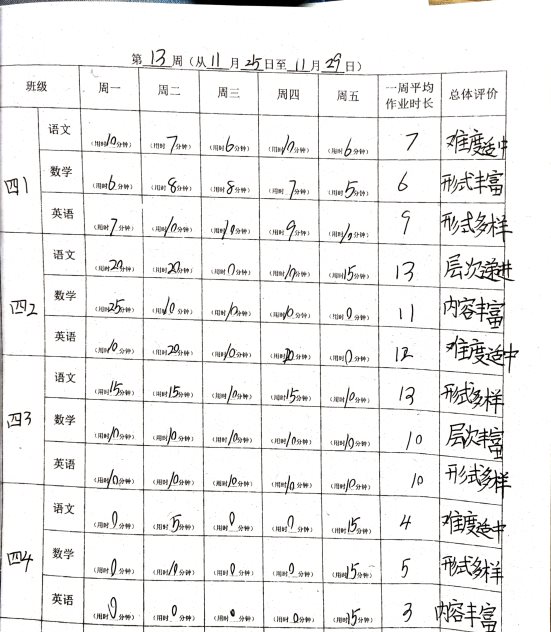 第 13 周（从 11 月 25 日至 11 月 29 日）
班级 周一 周二 周三 周四 周五 一周平均作业时长 总体评价
四1 语文 （用时10分钟） （用时7分钟） （用时6分钟） （用时10分钟） （用时6分钟） 7 难度适中
数学 （用时6分钟） （用时8分钟） （用时8分钟） （用时7分钟） （用时5分钟） 6 形式丰富
英语 （用时7分钟） （用时10分钟） （用时10分钟） （用时9分钟） （用时10分钟） 9 形式多样
四2 语文 （用时20分钟） （用时20分钟） （用时0分钟） （用时10分钟） （用时15分钟） 13 层次递进
数学 （用时25分钟） （用时10分钟） （用时10分钟） （用时10分钟） （用时0分钟） 11 内容丰富
英语 （用时10分钟） （用时20分钟） （用时10分钟） （用时20分钟） （用时0分钟） 12 难度适中
四3 语文 （用时15分钟） （用时15分钟） （用时10分钟） （用时15分钟） （用时10分钟） 13 形式多样
数学 （用时10分钟） （用时10分钟） （用时10分钟） （用时10分钟） （用时10分钟） 10 层次丰富
英语 （用时10分钟） （用时10分钟） （用时10分钟） （用时10分钟） （用时10分钟） 10 形式多样
四4 语文 （用时0分钟） （用时5分钟） （用时0分钟） （用时0分钟） （用时15分钟） 4 难度适中
数学 （用时0分钟） （用时10分钟） （用时0分钟） （用时0分钟） （用时15分钟） 5 形式多样
英语 （用时0分钟） （用时0分钟） （用时0分钟） （用时0分钟） （用时15分钟） 3 内容丰富